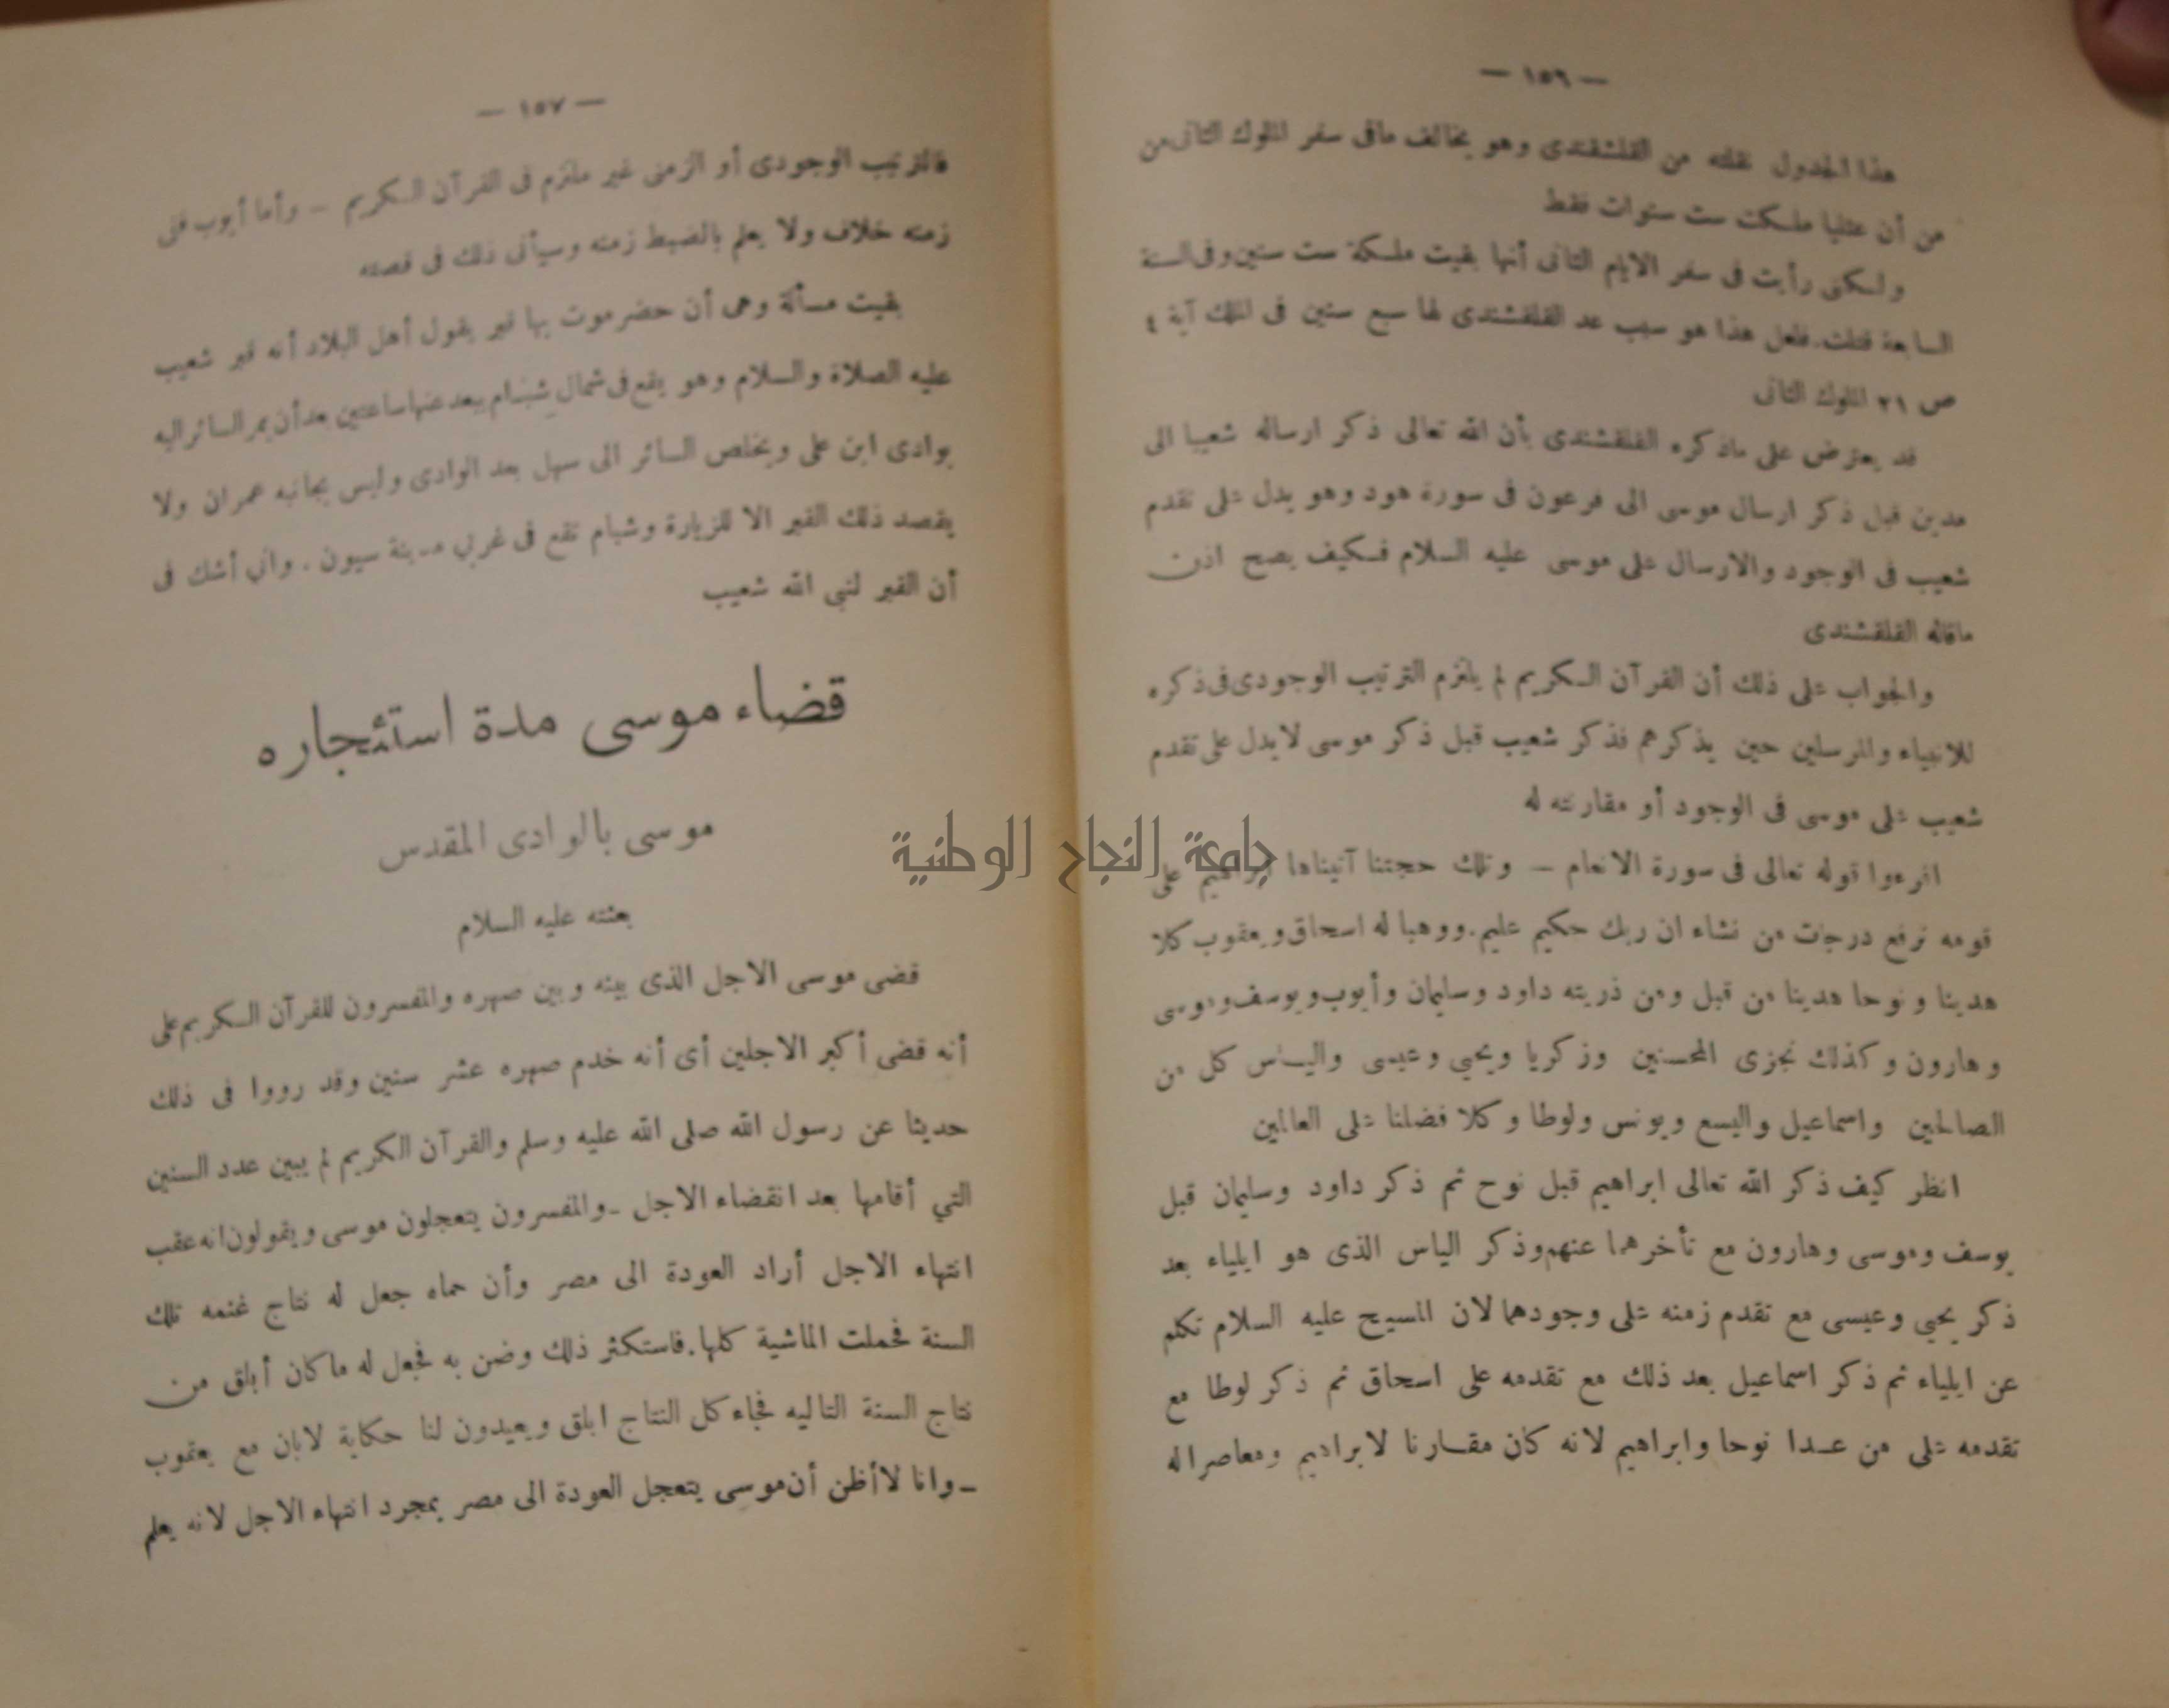 — ١٥٦ —
هذا الجدول نقلته من القلقشندى وهو يخالف مافى سفر الملوك الثانى من
من أن عثليا ملكت ست سنوات فقط
ولكنى رأيت فى سفر الايام الثانى أنها بقيت ملكة ست سنين وفى السنة
السابعة قتلت. فلعل هذا هو سبب عد القلقشندى لها سبع سنين فى الملك آية ٤
ص ٢١ الملوك الثانى
قد يعترض على ماذكره القلقشندى بأن الله تعالى ذكر ارساله شعيبا الى
مدين قبل ذكر ارسال موسى الى فرعون فى سورة هود وهو يدل على تقدم
شعيب فى الوجود والارسال على موسى عليه السلام فكيف يصح اذن
ماقاله القلقشندى
والجواب على ذلك أن القرآن الكريم لم يلتزم الترتيب الوجودى فى ذكره
للانبياء والمرسلين حين يذكرهم فذكر شعيب قبل ذكر موسى لايدل على تقدم
شعيب على موسى فى الوجود أو مقارنته له
اقرءوا قوله تعالى فى سورة الانعام — وتلك حجتنا آتيناها ابراهيم على
قومه نرفع درجات من نشاء ان ربك حكيم عليم. ووهبا له اسحاق ويعقوب كلا
هدينا ونوحا هدينا من قبل ومن ذريته داود وسليمان وأيوب ويوسف وموسى
وهارون وكذلك نجزى المحسنين وزكريا ويحيي وعيسى والياس كل من
الصالحين واسماعيل واليسع ويونس ولوطا وكلا فضلنا على العالمين
انظر كيف ذكر الله تعالى ابراهيم قبل نوح ثم ذكر داود وسليمان قبل
يوسف وموسى وهارون مع تأخرهما عنهم وذكر الياس الذى هو ايلياء بعد
ذكر يحيي وعيسى مع تقدم زمنه على وجودهما لان المسيح عليه السلام تكلم
عن ايلياء ثم ذكر اسماعيل بعد ذلك مع تقدمه على اسحاق ثم ذكر لوطا مع
تقدمه على من عدا نوحا وابراهيم لانه كان مقارنا لابراهيم ومعاصرا له
— ١٥٧ —
فالترتيب الوجودى أو الزمنى غير ملتزم فى القرآن الكريم — وأما أيوب ففى
زمنه خلاف ولا يعلم بالضبط زمنه وسيأتى ذلك فى قصته
بقيت مسألة وهى أن حضرموت بها قبر يقول أهل البلاد أنه قبر شعيب
عليه الصلاة والسلام وهو يقع فى شمال شبام يبعد عنها ساعتين بعد أن يمر السائر اليه
بوادى ابن على ويخلص السائر الى سهل بعد الوادى وليس بجانبه عمران ولا
يقصد ذلك القبر الا للزيارة وشبام تقع فى غربي مدينة سيون. واني أشك فى
أن القبر لنبى الله شعيب
قضاء موسى مدة استئجاره
موسى بالوادى المقدس
بعثته عليه السلام
قضى موسى الاجل الذى بينه وبين صهره والمفسرون للقرآن الكريم على
أنه قضى أكبر الاجلين أى أنه خدم صهره عشر سنين وقد رووا فى ذلك
حديثا عن رسول الله صلى الله عليه وسلم والقرآن الكريم لم يبين عدد السنين
التي أقامها بعد انقضاء الاجل - والمفسرون يتعجلون موسى ويقولون انه عقب
انتهاء الاجل أراد العودة الى مصر وأن حماه جعل له نتاج غنمه تلك
السنة فحملت الماشية كلها. فاستكثر ذلك وضن به فجعل له ماكان أبلق من
نتاج السنة التاليه فجاء كل النتاج ابلق ويعيدون لنا حكاية لابان مع يعقوب
- وانا لاأظن أن موسى يتعجل العودة الى مصر بمجرد انتهاء الاجل لانه يعلم
جامعة النجاح الوطنية